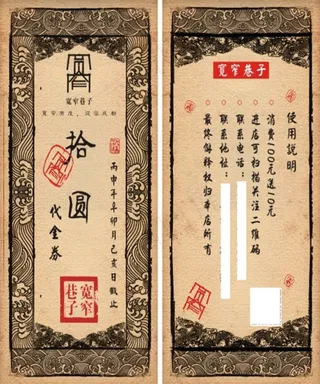 宽窄巷子
丙申年辛卯月己亥日截止
拾圆
代金券
宽窄
巷子
宽窄巷子
使用說明
消费100元送10元
进店可扫描关注二维码
联系电话：
联系地址：
最终解释权归本店所有